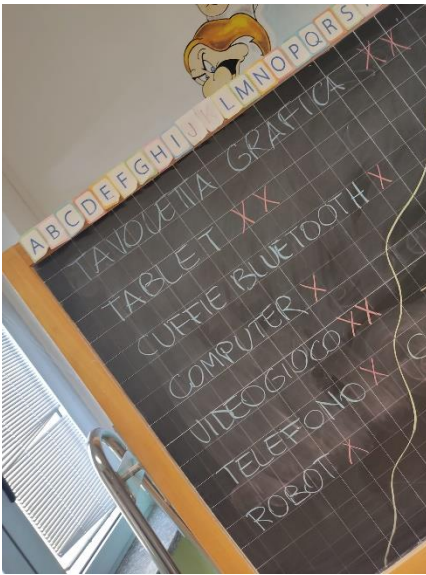 A B C D E F G H I J K L M N O P Q R S T
TAVOLETTA GRAFICA XX
TABLET XX
CUFFIE BLUETOOTH X
COMPUTER X
VIDEOGIOCO XX
TELEFONO X
ROBOT X